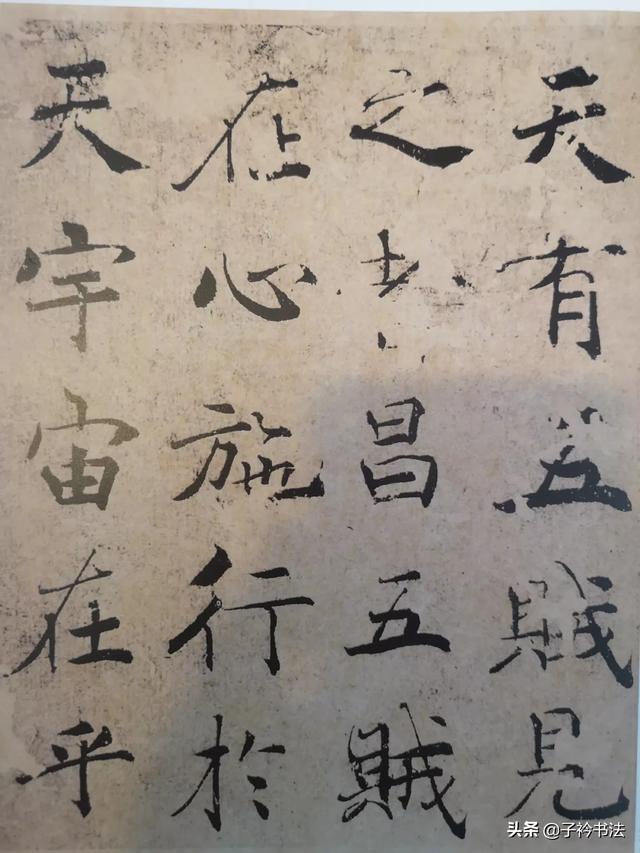 天有五賊見
之者昌五賊
在心施行於
天宇宙在乎
头条 @子衿书法